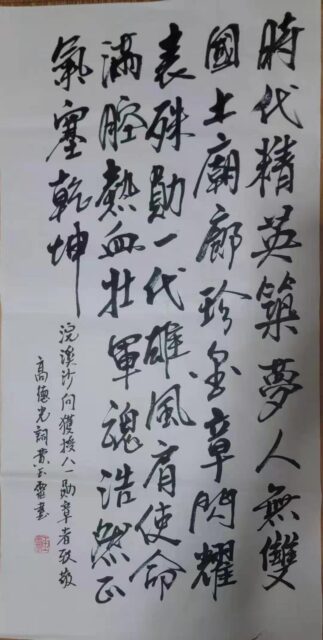 時代精英築夢人無雙
國士廟廊珍金章閃耀
表殊勛一代雄風肩使命
滿腔熱血壯軍魂浩然正
氣塞乾坤
浣溪沙向獲授八一勛章者致敬
高德光詞黄